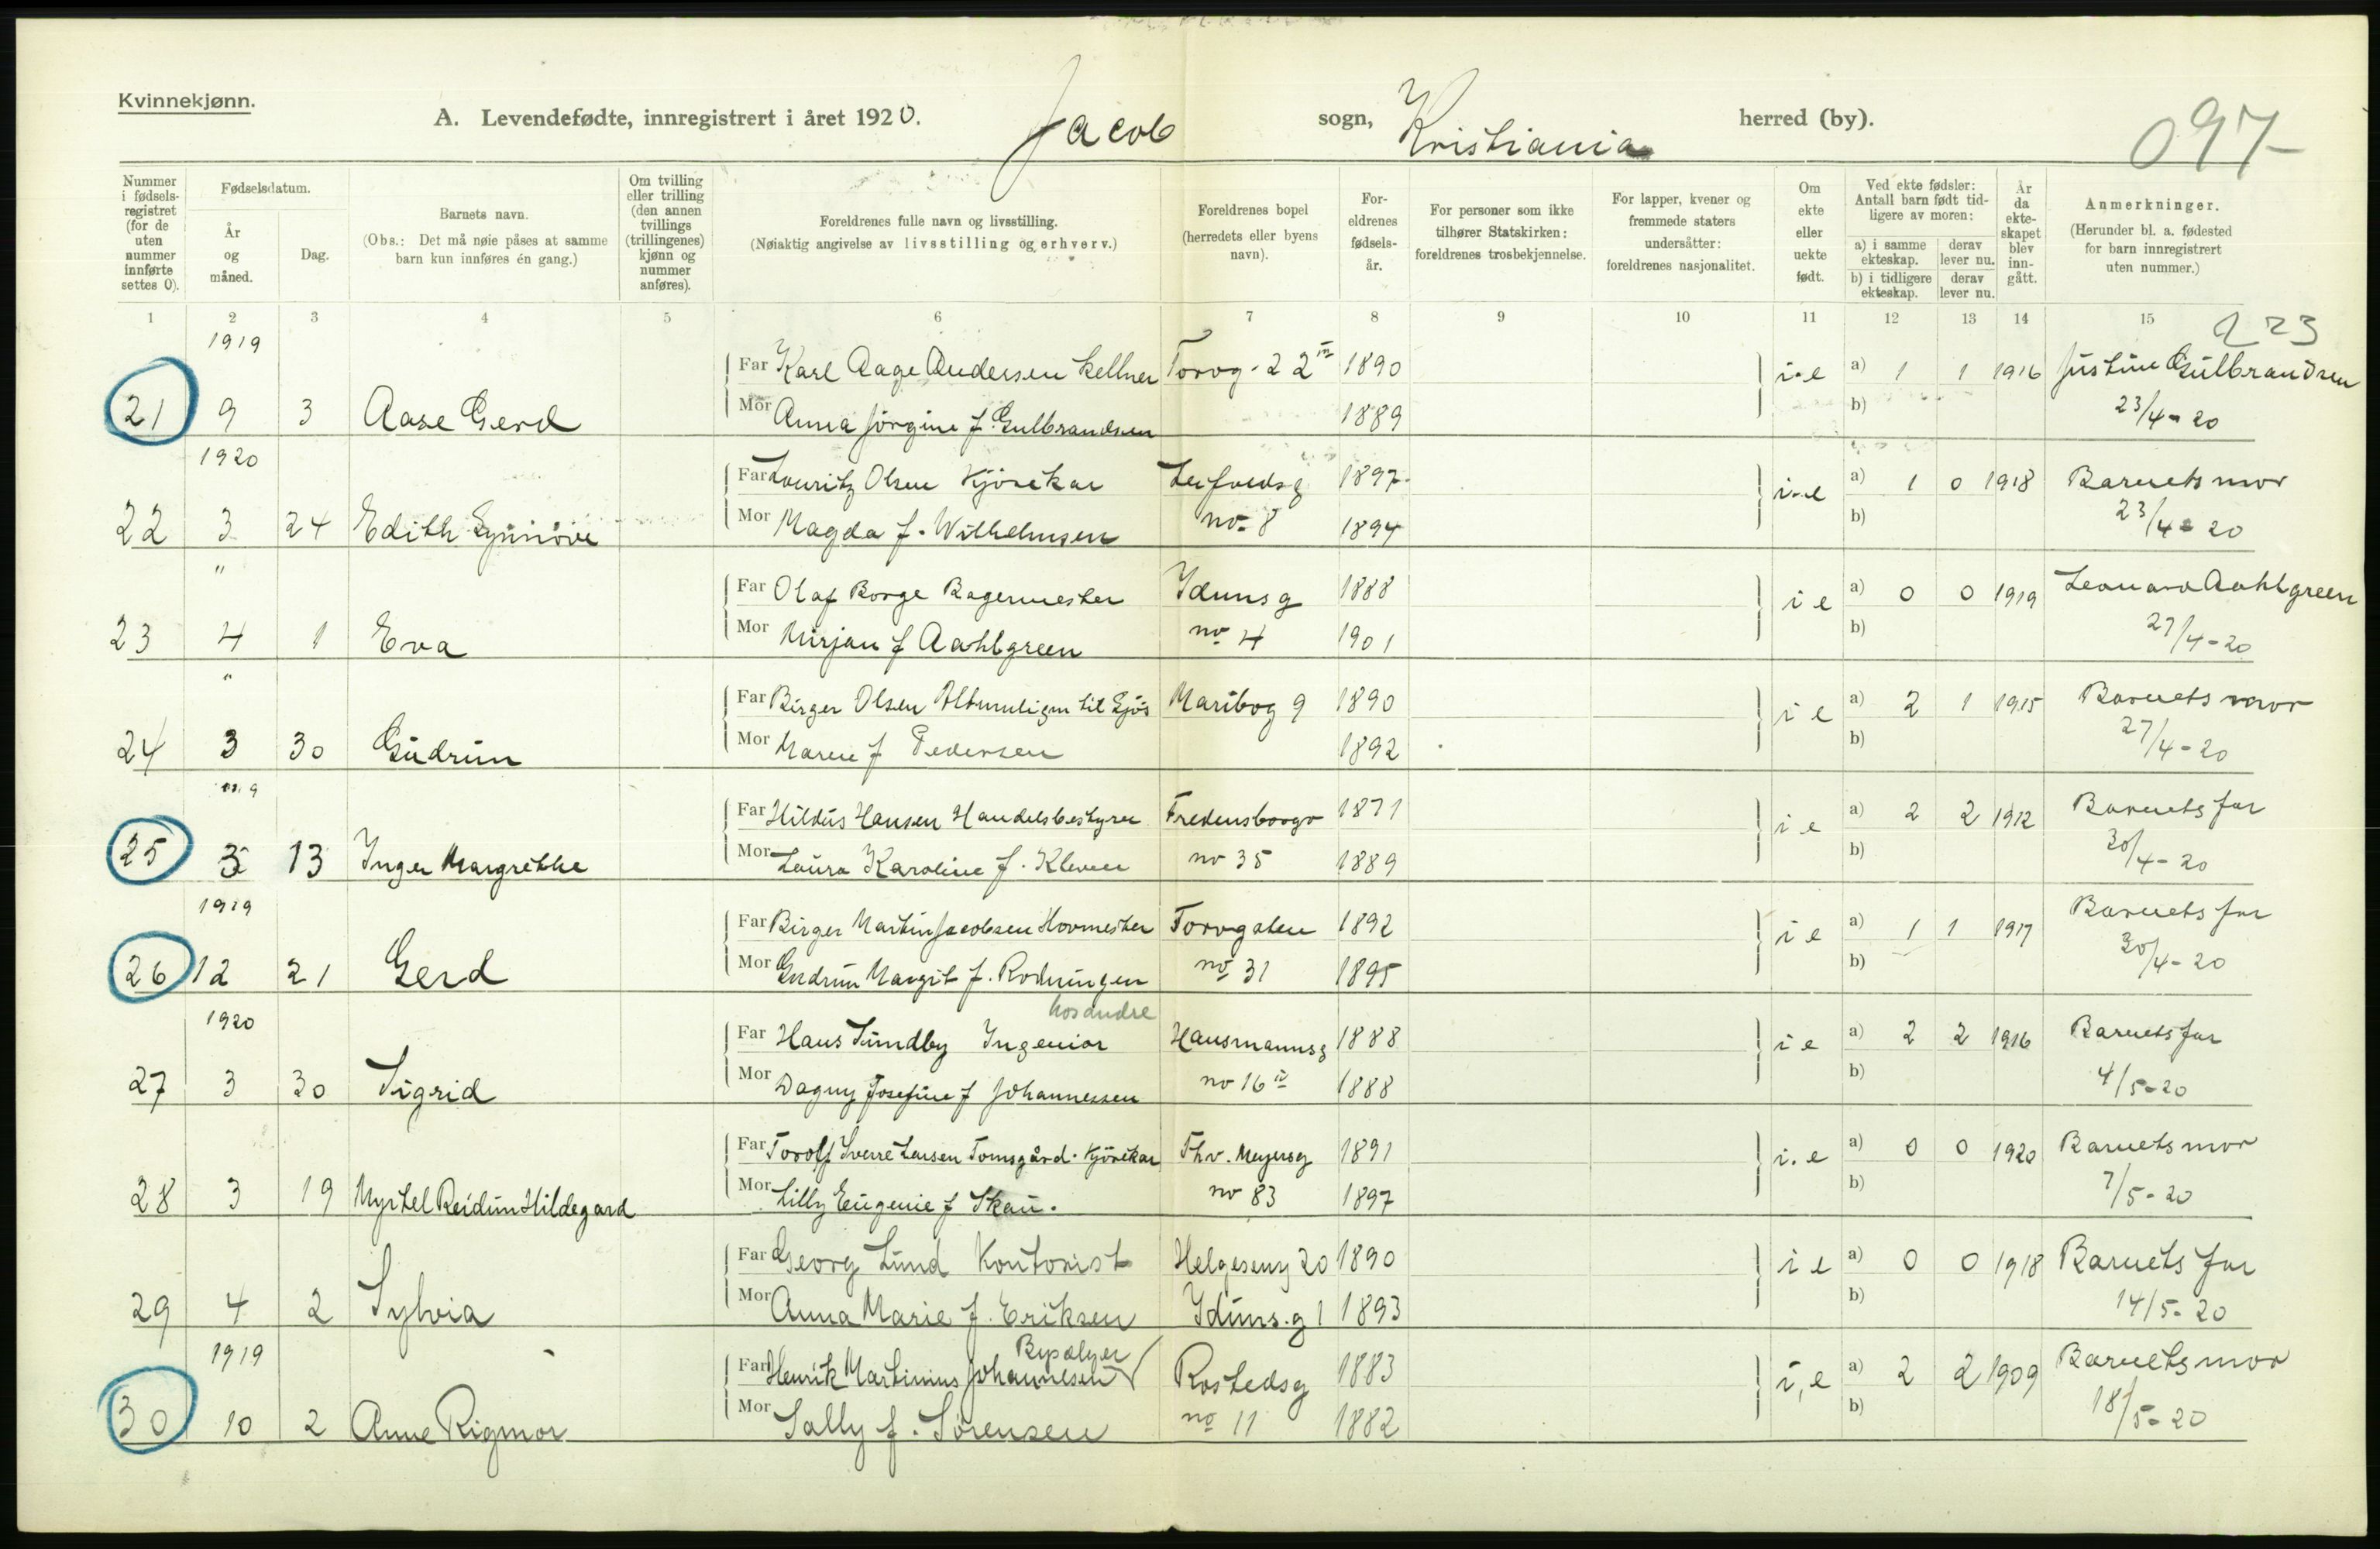 Kvinnekjønn.
A. Levendefødte, innregistrert i året 1920. Jacob sogn, Kristiania herred (by).
097-
Nummer i fødselsregistret (for de uten nummer innførte settes 0).
Fødselsdatum.
År og måned.
Dag.
Barnets navn.
(Obs.: Det må nøie påses at samme barn kun innføres én gang.)
Om tvilling eller trilling (den annen tvillings (trillingenes) kjønn og nummer anføres).
Foreldrenes fulle navn og livsstilling.
(Nøiaktig angivelse av livsstilling og erhverv.)
Foreldrenes bopel (herredets eller byens navn).
Foreldrenes fødselsår.
For personer som ikke tilhører Statskirken: foreldrenes trosbekjennelse.
For lapper, kvener og fremmede staters undersåtter: foreldrenes nasjonalitet.
Om ekte eller uekte født.
Ved ekte fødsler: Antall barn født tidligere av moren:
a) i samme ekteskap. derav lever nu.
b) i tidligere ekteskap. derav lever nu.
År da ekteskapet blev inngått.
Anmerkninger.
(Herunder bl. a. fødested for barn innregistrert uten nummer.)
1 2 3 4 5 6 7 8 9 10 11 12 13 14 15
223
1919
Far Karl Aage Andersen Kellner Torvg. 22 III 1890 i.e a) 1 1 1916 Justine Gulbrandsen
21 9 3 Aase Gerd Mor Anna Jörgine f. Gulbrandsen 1889 b) 23/4-20
1920
Far Louritz Olsen Kjörekar g 1897 i.e a) 1 0 1918 Barnets mor
22 3 24 Edith Synnöve Mor Magda f. Wilhelmsen no 8 1894 b) 23/4-20
"
Far Olaf Borge Bagermester Idunsg 1888 i e a) 0 0 1919 Leonard Aahlgreen
23 4 1 Eva Mor Mirjam f Aahlgreen no 4 1901 b) 27/4-20
"
Far Birger Olsen til Sjös Maribog 9 1890 i e a) 2 1 1915 Barnets mor
24 3 30 Gudrun Mor Maren f Pedersen 1892 b) 27/4-20
1919
Far Hildus Hansen Handelsbestyrer Fredensborgv 1871 i e a) 2 2 1912 Barnets far
25 3 13 Inger Margrethe Mor Laura Karoline f. Kleven no 35 1889 b) 30/4-20
1919
Far Birger Martin Jacobsen Hovmester Torvgaten 1892 i e a) 1 1 1917 Barnets far
26 12 21 Gerd Mor Gudrun Margit f. Rodningen no 31 1895 b) 30/4-20
hos andre
1920
Far Hans Sundby Ingeniør Hausmannsg 1888 i e a) 2 2 1916 Barnets far
27 3 30 Sigrid Mor Dagny Josefine f Johannessen no 16 IV 1888 b) 4/5-20
Far Torolf Sverre Larsen Tomsgård. Kjörekar Thv. Meyersg 1891 i.e a) 0 0 1920 Barnets mor
28 3 19 Myrtel Reidun Hildegard Mor Lilly Eugenie f Skau. no 83 1897 b) 7/5-20
Far Georg Lund Kontorist Helgeseng 20 1890 i e a) 0 0 1918 Barnets far
29 4 2 Sylvia Mor Anna Marie f. Eriksen Iduns.g 1 1893 b) 14/5-20
1919
Far Henrik Martinius Johannesen Rostedsg 1883 i,e a) 2 2 1909 Barnets mor
30 10 2 Anne Rigmor Mor Sally f. Sørensen no 11 1882 b) 18/5-20